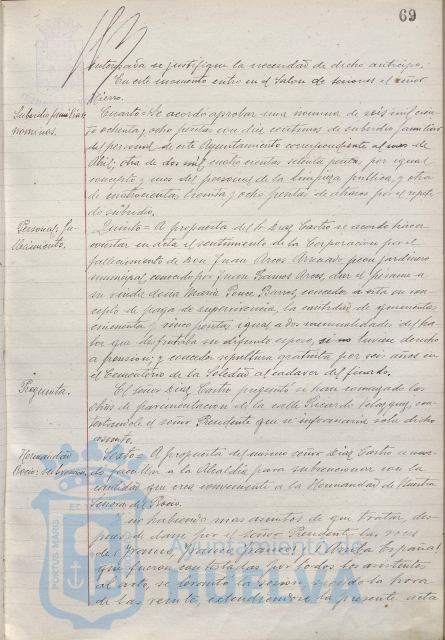 69
interesada se justifique la necesidad de dicho anticipo.
En este momento entra en el Salon de sesiones el señor
Hierro.
Subsidio familiar
nominas.
Cuarto = Se acordó aprobar una nomina de seis mil cien-
to ochenta y ocho pesetas con diez centimos de subsidio familiar
del personal de este Ayuntamiento correspondiente al mes de
Abril; otra de dos mil cuatrocientas setenta pesetas, por igual
concepto y mes del personal de la limpieza publica, y otra
de cuatrocientas treinta y ocho pesetas de atrasos por el repetido
subsidio.
Personal, fa-
llecimiento.
Quinto = A propuesta del Sr Diaz Castro se acordó hacer
constar en acta el sentimiento de la Corporacion por el
fallecimiento de Don Juan Arcos peon jardinero
municipal, conocido por Juan Ramos Arcos, dar el pésame a
su viuda doña Maria Ponce Barros, conceder a esta en con-
cepto de paga de supervivencia, la cantidad de quinientas
cincuenta y cinco pesetas igual a dos mensualidades del ha-
ber que disfrutaba su difunto esposo, si no tuviese derecho
a pension; y conceder sepultura gratuita por seis años en
el Cementerio de la Soledad al cadaver del finado.
Pregunta.
El señor Diaz Castro preguntó si han comenzado las
obras de pavimentacion de la calle Ricardo Velazquez, con-
testandole el señor Presidente que se informaria sobre dicho
asunto.
Hermandad
Rocio: subvencion.
Sexto = A propuesta del mismo señor Diaz Castro se acor-
dó facultar a la Alcaldia para subvencionar con la
cantidad que crea conveniente a la Hermandad de Nuestra
Señora del Rocio.
No habiendo mas asuntos de que tratar, des-
pues de darse por el señor Presidente las voces
de ¡Franco, Franco, Franco! ¡Arriba España!
que fueron contestadas por todos los asistentes
al acto, se levantó la sesion siendo la hora
de las veinte, extendiendose la presente acta
PORTUS MARIS ET
Ayuntamiento de
HUELVA